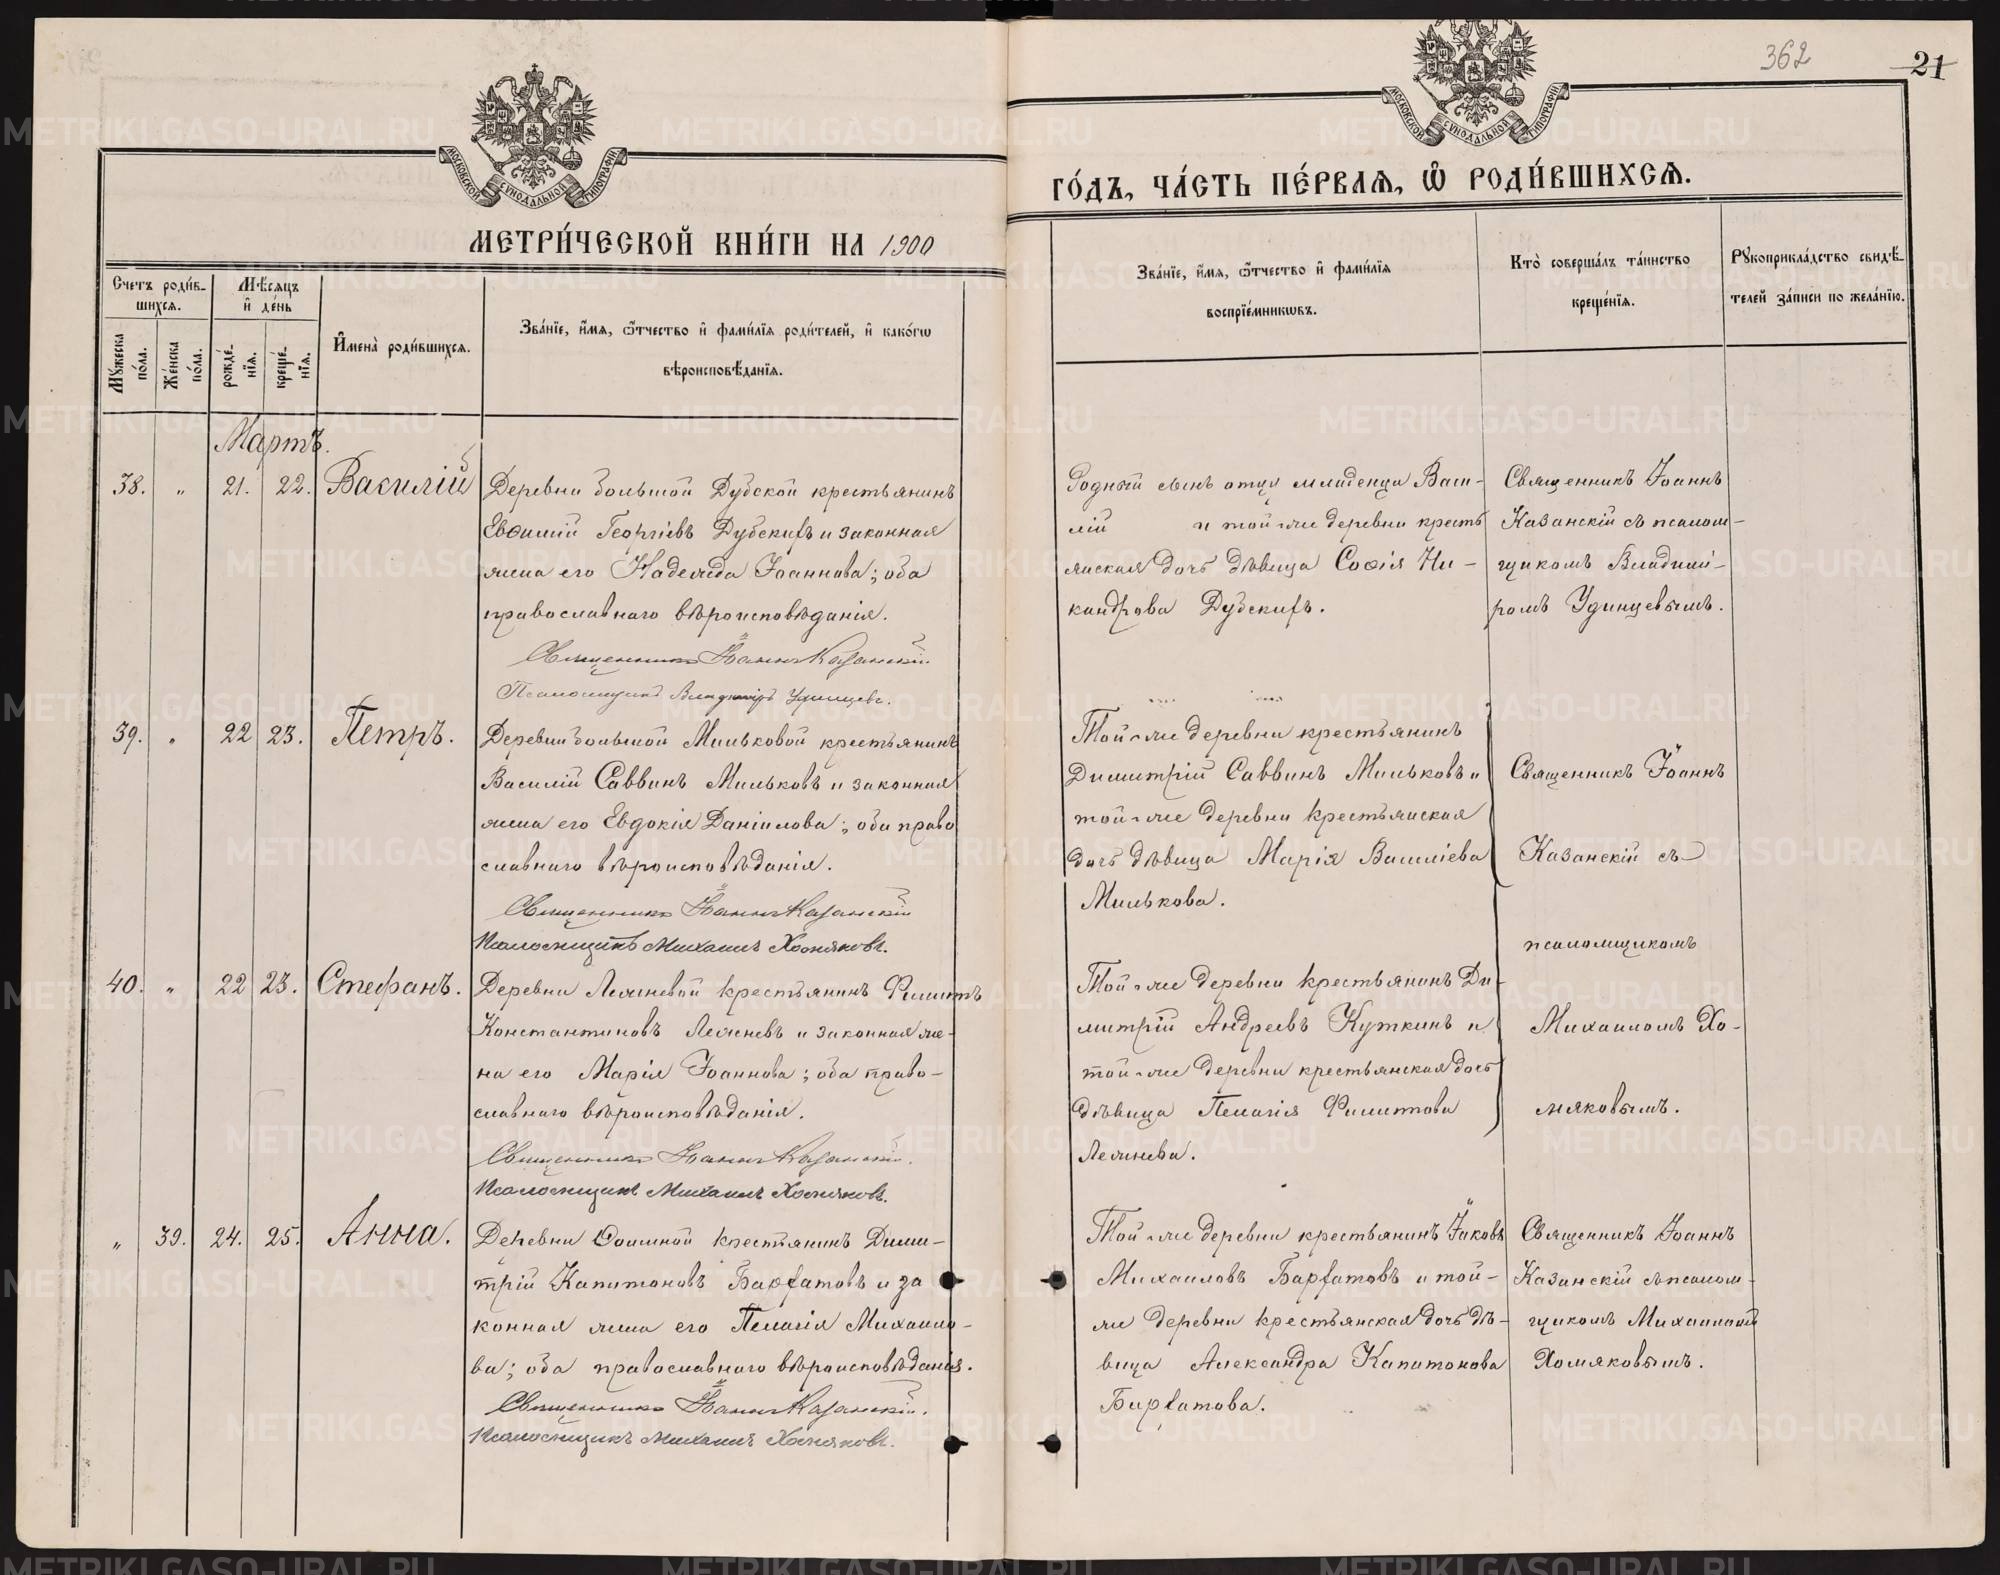 362
21
МОСКОВСКОЙ СѴНОДАЛЬНОЙ ТИПОГРАФІИ
МОСКОВСКОЙ СѴНОДАЛЬНОЙ ТИПОГРАФІИ
МЕТРИ́ЧЕСКОЙ КНИ́ГИ НА 1900
ГО́ДЪ, ЧА́СТЬ ПЕ́РВАѦ, Ѽ РОДИ́ВШИХСѦ.
Счетъ роди́в-
шихсѧ.
Мѣ́сѧцъ
и҆ де́нь
Мꙋ́жеска
по́ла.
Же́нска
по́ла.
рожде́-
нїѧ.
креще́-
нїѧ.
И҆мена̀ роди́вшихсѧ.
Зва́нїе, и҆́мѧ, ѻ҆́тчество и҆ фами́лїѧ роди́телей, и҆ како́гѡ
вѣроисповѣ́данїѧ.
Зва́нїе, и҆́мѧ, ѻ҆́тчество и҆ фами́лїѧ
воспрїе́мникѡвъ.
Кто̀ соверша́лъ та́инство
креще́нїѧ.
Рꙋкоприкла́дство свидѣ́-
телей за́писи по жела́нїю.
Мартъ.
38. „ 21. 22. Василій
Деревни большой Дубской крестьянинъ
Евѳимій Георгіевъ Дубскихъ и законная
жена его Надежда Іоаннова; оба
православнаго вѣроисповѣданія.
Священникъ Іоаннъ Казанскій
Псаломщикъ Владиміръ Удинцевъ.
Родный сынъ отца младенца Васи-
лій и той-же деревни кресть
янская дочь дѣвица Софія Ни-
кандрова Дубскихъ.
Священникъ Іоаннъ
Казанскій съ псалом-
щикомъ Владимі-
ромъ Удинцевымъ.
39. „ 22 23. Петръ.
Деревни большой Мильковой крестьянинъ
Василій Саввинъ Мильковъ и законная
жена его Евдокія Даніилова; оба право
славнаго вѣроисповѣданія.
Священникъ Іоаннъ Казанскій
Псаломщикъ Михаилъ Хомяковъ.
Той-же деревни крестьянинъ
Димитрій Саввинъ Мильковъ и
той-же деревни крестьянская
дочь дѣвица Марія Василіева
Милькова.
Священникъ Іоаннъ
Казанскій съ
псаломщикомъ
Михаиломъ Хо-
мяковымъ.
40. „ 22 23. Стефанъ.
Деревни Лежневой крестьянинъ Филиппъ
Константиновъ Лежневъ и законная же-
на его Марія Іоаннова; оба право-
славнаго вѣроисповѣданія.
Священникъ Іоаннъ Казанскій.
Псаломщикъ Михаилъ Хомяковъ.
Той-же деревни крестьянинъ Ди-
митрій Андреевъ Куткинъ и
той-же деревни крестьянская дочь
дѣвица Пелагія Филиппова
Лежнева.
„ 39. 24. 25. Анна.
Деревни крестьянинъ Дими-
трій Капитоновъ Бархатовъ и за
конная жена его Пелагія Михаило-
ва; оба православнаго вѣроисповѣданія.
Священникъ Іоаннъ Казанскій.
Псаломщикъ Михаилъ Хомяковъ.
Той-же деревни крестьянинъ Іаковъ
Михаиловъ Бархатовъ и той-
же деревни крестьянская дочь дѣ-
вица Александра Капитонова
Бархатова.
Священникъ Іоаннъ
Казанскій съ псалом-
щикомъ Михаиломъ
Хомяковымъ.